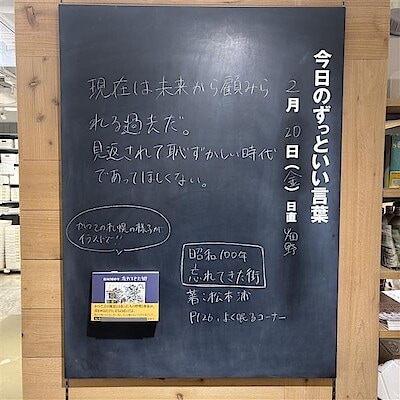 今日のずっといい言葉
2月20日(金) 日直 畑野
現在は未来から顧みら
れる過去だ。
見返されて恥ずかしい時代
であってほしくない。
かつての札幌の様子が
イラストで!!
昭和100年
忘れてきた街
著:松本浦
P126, よく眠るコーナー